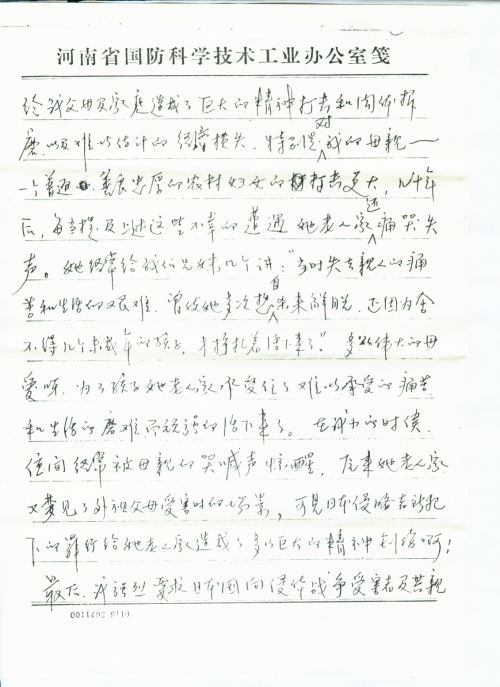 河南省国防科学技术工业办公室笺
给我父母及家庭造成了巨大的精神打击和肉体折
磨,以及难以估计的经济损失。特别是对我的母亲一
一个普通善良忠厚的农村妇女的打击更大,几十年
后,每当提及上述这些不幸的遭遇她老人家还痛哭失
声。她经常给我们兄妹几个讲:“当时失去亲人的痛
苦和生活的艰难,曾使她多次想自杀来解脱,正因为舍
不得几个未成年的孩子,才挣扎着活下来了”。多么伟大的母
爱呀,为了孩子她老人家承受住了难以承受的痛苦
和生活的磨难而顽强的活下来了。在我小的时侯,
夜间经常被母亲的哭喊声惊醒,原来她老人家
又梦见了外祖父母受害时的情景,可见日本侵略者所犯
下的罪行给她老人家造成了多么巨大的精神创伤啊!
最后,我强烈要求日本国向侵华战争受害者及其亲
0011492 9110